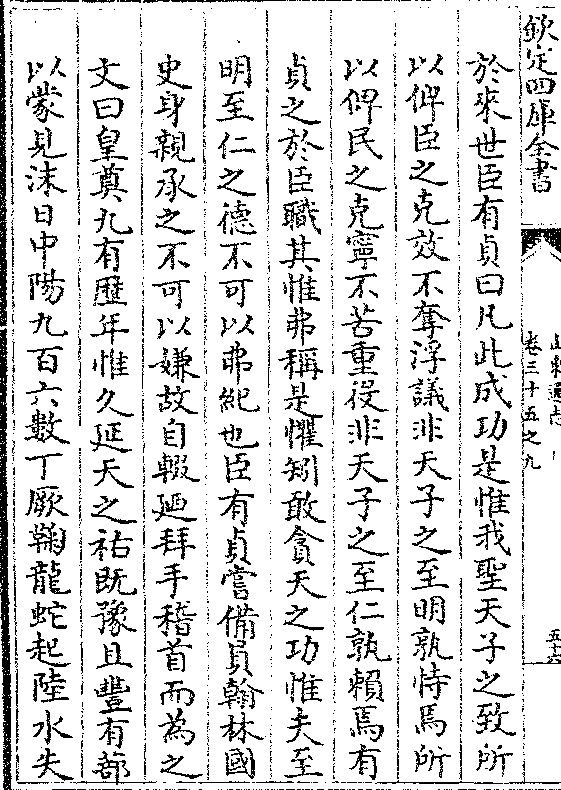 欽定四庫全書
山東通志
卷三十五之九
五十六
於來世臣有貞曰凡此成功是惟我聖天子之致所
以俾臣之克效不奪浮議非天子之至明孰恃焉所
以俾民之克寧不苦重役非天子之至仁孰賴焉有
貞之於臣職其惟弗稱是懼矧敢貪天之功惟夫至
明至仁之德不可以弗紀也臣有貞嘗備員翰林國
史身親承之不可以嫌故自輟廼拜手稽首而為之
文曰皇奠九有歷年惟久延天之祐既豫且豐有蔀
以蒙見沬日中陽九百六數丁厥鞠龍蛇起陸水失